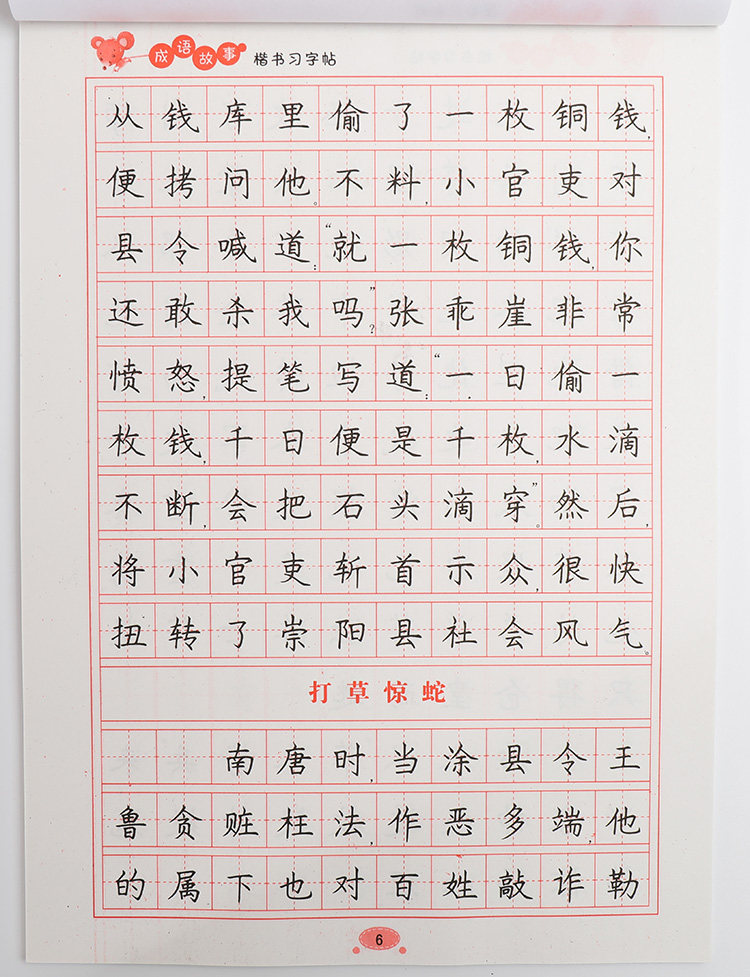 成语故事 楷书习字帖
从钱库里偷了一枚铜钱，
便拷问他。不料，小官吏对
县令喊道：“就一枚铜钱，你
还敢杀我吗？”张乖崖非常
愤怒，提笔写道：“一日偷一
枚钱，千日便是千枚，水滴
不断，会把石头滴穿”。然后，
将小官吏斩首示众，很快
扭转了崇阳县社会风气。
打草惊蛇
南唐时，当涂县令王
鲁贪赃枉法，作恶多端，他
的属下也对百姓敲诈勒
6